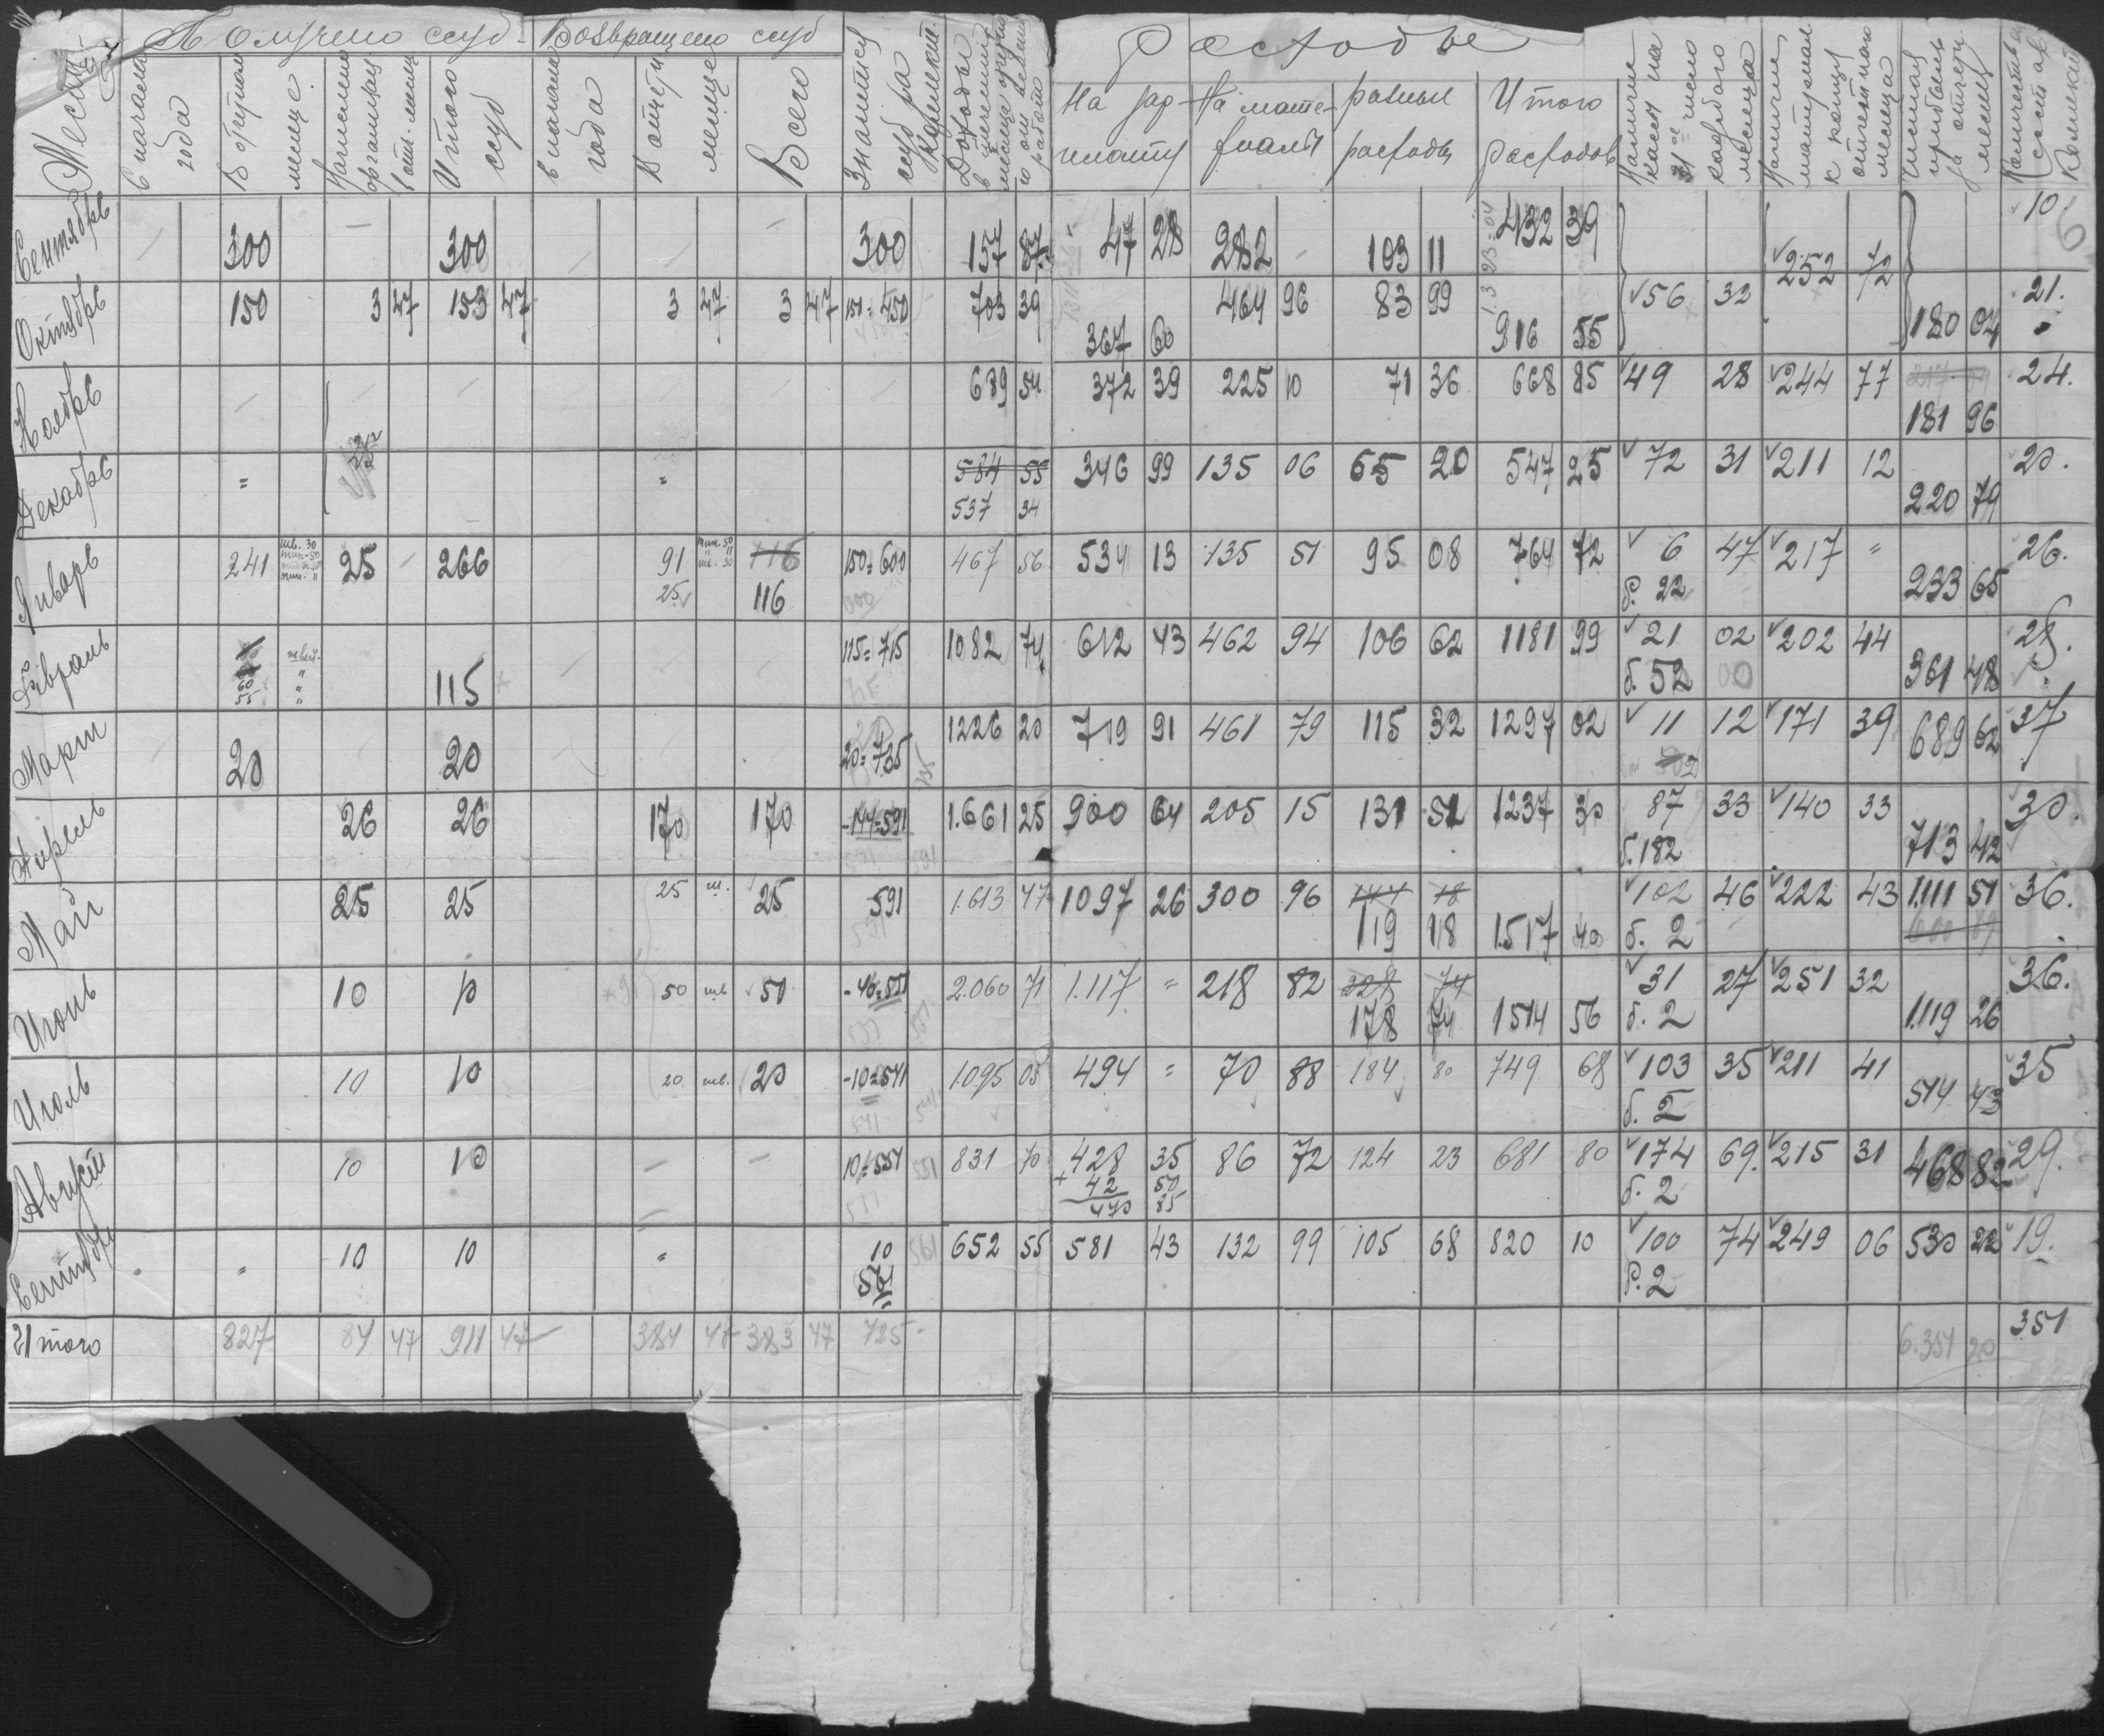 Получено ссуд Возвращено ссуд Расходы
Месяц С начала года В отчетном месяце Начислено организац. в отч. месяц Итого ссуд в начале года В отчетн. месяце Всего Значится ссуд за Коллект. Доходы в течении месяца
На зарплату На материалы разные расходы Итого расходов Наличие кассы на 31ое число каждого месяца Наличие материал. к концу отчетного месяца Чистая прибыль за отчетн. месяц Количество Коллект.
Сентябрь 300 300 300 157 87 47 28 282 - 103 11 432 39 252 72 10.
Октябрь 150 3 47 153 47 3 47 3 47 150=450 703 39 367 60 464 96 83 99 916 55 56 32 180 04 21.
Ноябрь 689 54 372 39 225 10 71 36 668 85 49 28 244 77 181 96 24.
Декабрь = = 584 55 346 99 135 06 65 20 547 25 72 31 211 12 220 79 20.
537 34
Январь 241 25 266 91 116 150=600 467 56 534 13 135 51 95 08 764 72 6 47 217 = 233 65 26.
25 116 р. 22
Февраль 60 55 115 115=715 1082 74 612 43 462 94 106 62 1181 99 21 02 202 44 361 48 28.
б. 52 00
Март 20 20 20=735 1226 20 719 91 461 79 115 32 1297 02 11 12 171 39 689 62 37
Апрель 26 26 170 170 -144=591 1.661 25 900 64 205 15 131 51 1237 30 87 33 140 33 713 42 30.
б. 182
Май 25 25 25 ш. 25 591 1.613 47 1097 26 300 96 144 18 102 46 222 43 1.111 51 36.
119 18 1.517 40 б. 2
Июнь 10 10 50 шв 50 -40=551 2.060 71 1.117 = 218 82 328 74 31 27 251 32 1.119 26 36.
178 74 1514 56 б. 2
Июль 10 10 20 шв. 20 -10=541 1.095 05 494 = 70 88 184 80 749 68 103 35 211 41 514 43 35
б. 2
Август 10 10 10=551 831 70 428 35 86 72 124 23 681 80 174 69. 215 31 468 82 29.
+ 42 50 б. 2
470 85
Сентябрь " 10 10 " 10 652 55 581 43 132 99 105 68 820 10 100 74 249 06 530 22 19.
561 р. 2
Итого 827 84 47 911 47 384 47 383 47 725- 6.354 20 351